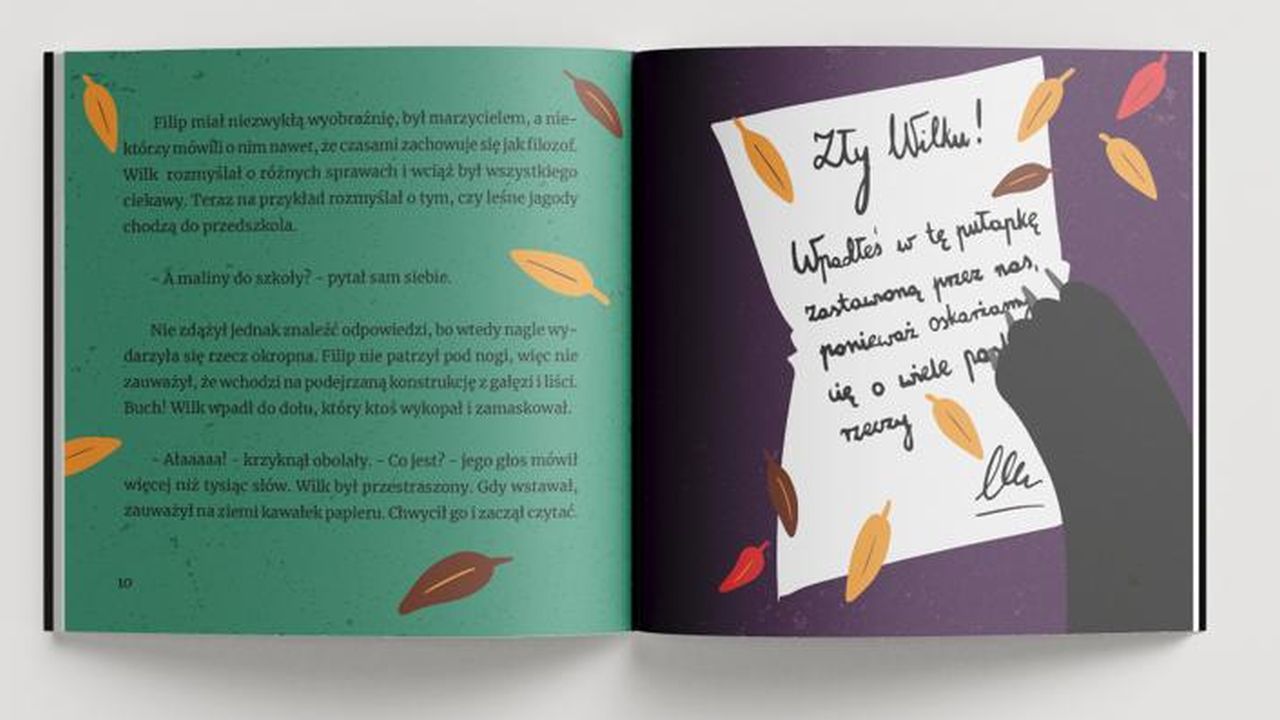 Filip miał niezwykłą wyobraźnię, był marzycielem, a nie-
którzy mówili o nim nawet, że czasami zachowuje się jak filozof.
Wilk rozmyślał o różnych sprawach i wciąż był wszystkiego
ciekawy. Teraz na przykład rozmyślał o tym, czy leśne jagody
chodzą do przedszkola.
– A maliny do szkoły? – pytał sam siebie.
Nie zdążył jednak znaleźć odpowiedzi, bo wtedy nagle wy-
darzyła się rzecz okropna. Filip nie patrzył pod nogi, więc nie
zauważył, że wchodzi na podejrzaną konstrukcję z gałęzi i liści.
Buch! Wilk wpadł do dołu, który ktoś wykopał i zamaskował.
– Ałaaaaa! – krzyknął obolały. – Co jest? – jego głos mówił
więcej niż tysiąc słów. Wilk był przestraszony. Gdy wstawał,
zauważył na ziemi kawałek papieru. Chwycił go i zaczął czytać.
10
Zły Wilku!
Wpadłeś w tę pułapkę
zastawioną przez nas,
ponieważ oskarżamy
cię o wiele
rzeczy